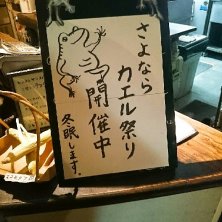 さよなら
カエル祭り
開催中
冬眠します。